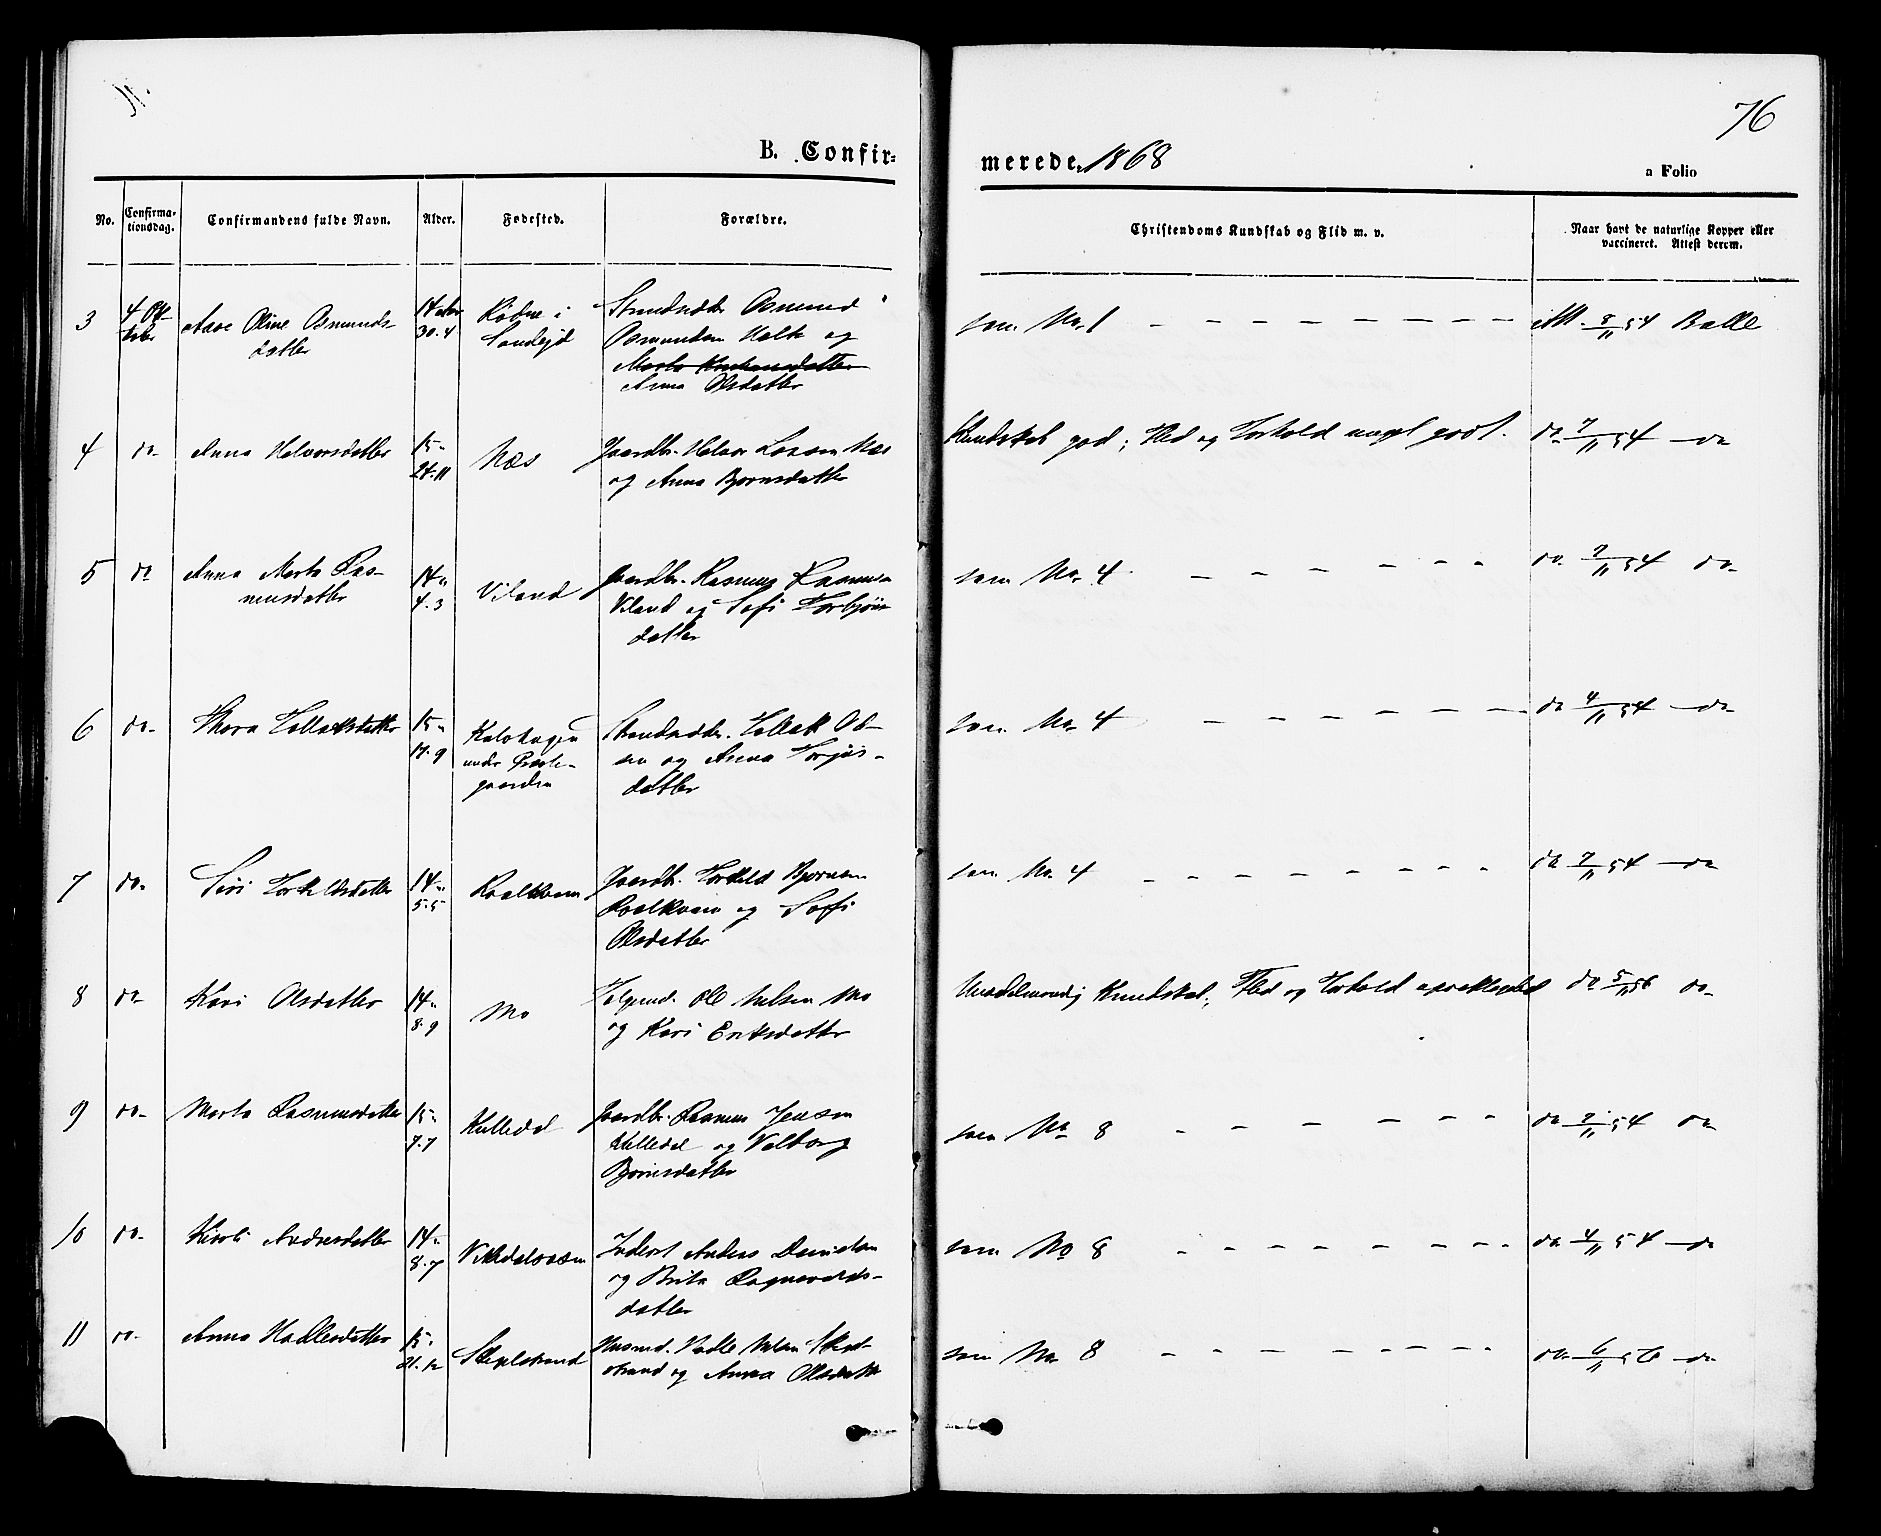 76
B. Confir-
merede. 1868
a Folio
No.
Confirma-
tionsdag.
Confirmandens fulde Navn.
Alder.
Fødested.
Forældre.
Christendoms Kundskab og Flid m. v.
Naar havt de naturlige Kopper eller
vaccineret. Attest derom.
3
4 Ok
tober
Aase Oline Osmunds-
datter
14
30.4
Rødne i
Sandejd
Strandsidder Osmund
Osmundsen og
Anna Olsdatter
som No. 1
Att. 8/11 54 Balle
4
do-
Anna Halvorsdatter
15"
24.11
Næs
Gaardbr. Halvor Larsen Næs
og Anna Bjørnsdatter
Kundskab god; Flid og Forhold meget godt.
do 7/11 54 do
5
do
Anna Marta Ras-
musdatter
14"
4.3
Viland
Gaardbr. Rasmus Rasmusen
Viland og Sofi Torbjørns
datter
som No. 4
do. 7/11 54 do-
6
do-
Thora Tollaksdatter
15"
17.9
Kalvhagen
under Præste-
gaarden
Strandsidder. Tollak Ol-
sen og Anna
datter
som No. 4
do 4/11 54 do
7
do-
Siri Torkildsdatter
14"
5.5
Roalkvam
Gaardbr. Torkild Bjørnsen
Roalkvam og Sofi
Olsdatter
som No. 4
do 7/11 54 do
8
do-
Kari Olsdatter
14"
8.9
Mo
Ole Nilsen Mo
og Kari Eriksdatter
Kundskab; Flid og Forhold
do 5/11 56 do-
9
do-
Marta Rasmusdatter
15"
7.7
Kelledal
Gaardbr. Rasmus Jensen
Kelledal og Valborg
Bjørnsdatter
som No 8
do 7/11 54 do
10
do-
Kirsti Andersdatter
14"
8.7
Vikedalsosen
Inderst Anders Danielsen
og Brita Ragnvalds-
datter
som No 8
do 4/11 54 do
11
do-
Anna Hadlesdatter
15"
21.12
Husmd. Hadle Nilsen
strand og Anna Olsdatter
som No. 8
do. 6/11 56 do